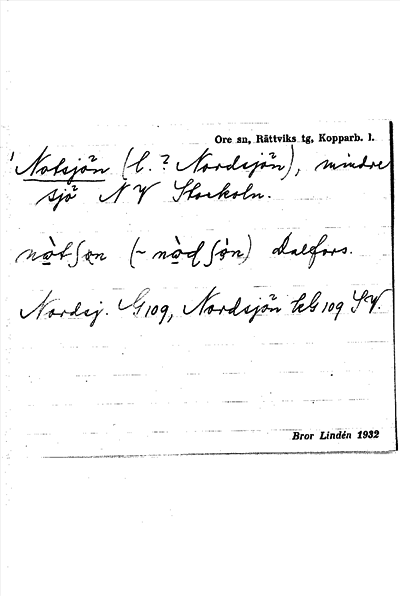 Ore sn, Rättviks tg, Kopparb. l.
'Notsjön (l. ? Nordsjön), mindre
sjö NV Stockoln.
nòtʃøn (~ nòdʃøn) Dalfors.
Nordsj. G109, Nordsjön kG109 SV.
Bror Lindén 1932